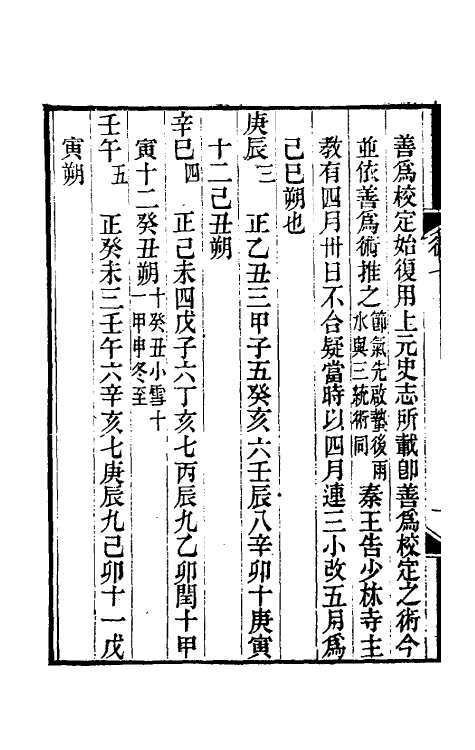 善爲校定始復用上元史志所載卽善爲校定之術今
並依善爲術推之節氣先啟蟄後雨水與三統術同秦王告少林寺主
教有四月卅日不合疑當時以四月連三小改五月爲
己巳朔也
庚辰三　正乙丑三甲子五癸亥六壬辰八辛卯十庚寅
十二己丑朔
辛巳四　正己未四戊子六丁亥七丙辰九乙卯閏十甲
寅十二癸丑朔十癸丑小雪十一甲申冬至
壬午五　正癸未三壬午六辛亥七庚辰九己卯十一戊
寅朔